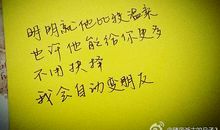 明明就他比较温柔
也许他能给你更多
不用抉择
我会自动变朋友